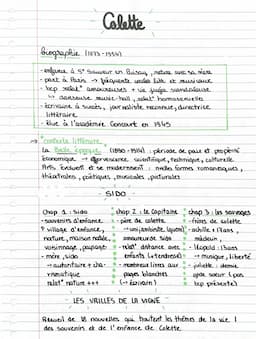 Colette
Biographie (1873-1954)
- enfance à St Sauveur en Puisaye, nature avec sa mère
- part à Paris → fréquente milieu litt et musicaux
- bcp relat° amoureuses + vie jugée scandaleuse
↳ danseuse music-hall, relat° homosexuelle
- écrivaine à succès, journaliste reconnue, directrice
littéraire
- élue à l'académie Goncourt en 1945
→ contexte littéraire
La Belle époque (1890-1914) : période de paix et prospérité
économique → effervescence scientifique, technique, culturelle
Arts évoluent et se modernisent : nvelles formes romanesques,
théâtrales, poétiques, musicales, picturales
- SIDO
chap 1 : sido
- souvenirs d'enfance
+ village d'enfance,
nature, maison natale,
voisinage, paysage
- mère, sido
→ autoritaire + cha-
rismatique
relat° nature +++
chap 2 : le capitaine
- père de colette
amoureux de sido
- relat° distance avec
enfants (+tendresse)
- nombreux livres aux
pages blanches
(→ écrivain)
chap 3 : les sauvages
- frères de colette
- achille : 17ans,
médecin,
- léopold : 13ans
→ musique, liberté
- juliette : demie
grde soeur (pas
bcp présente)
- LES VRILLES DE LA VIGNE -
Recueil de 18 nouvelles qui traitent les thèmes de la vie,
des souvenirs et de l'enfance de Colette.